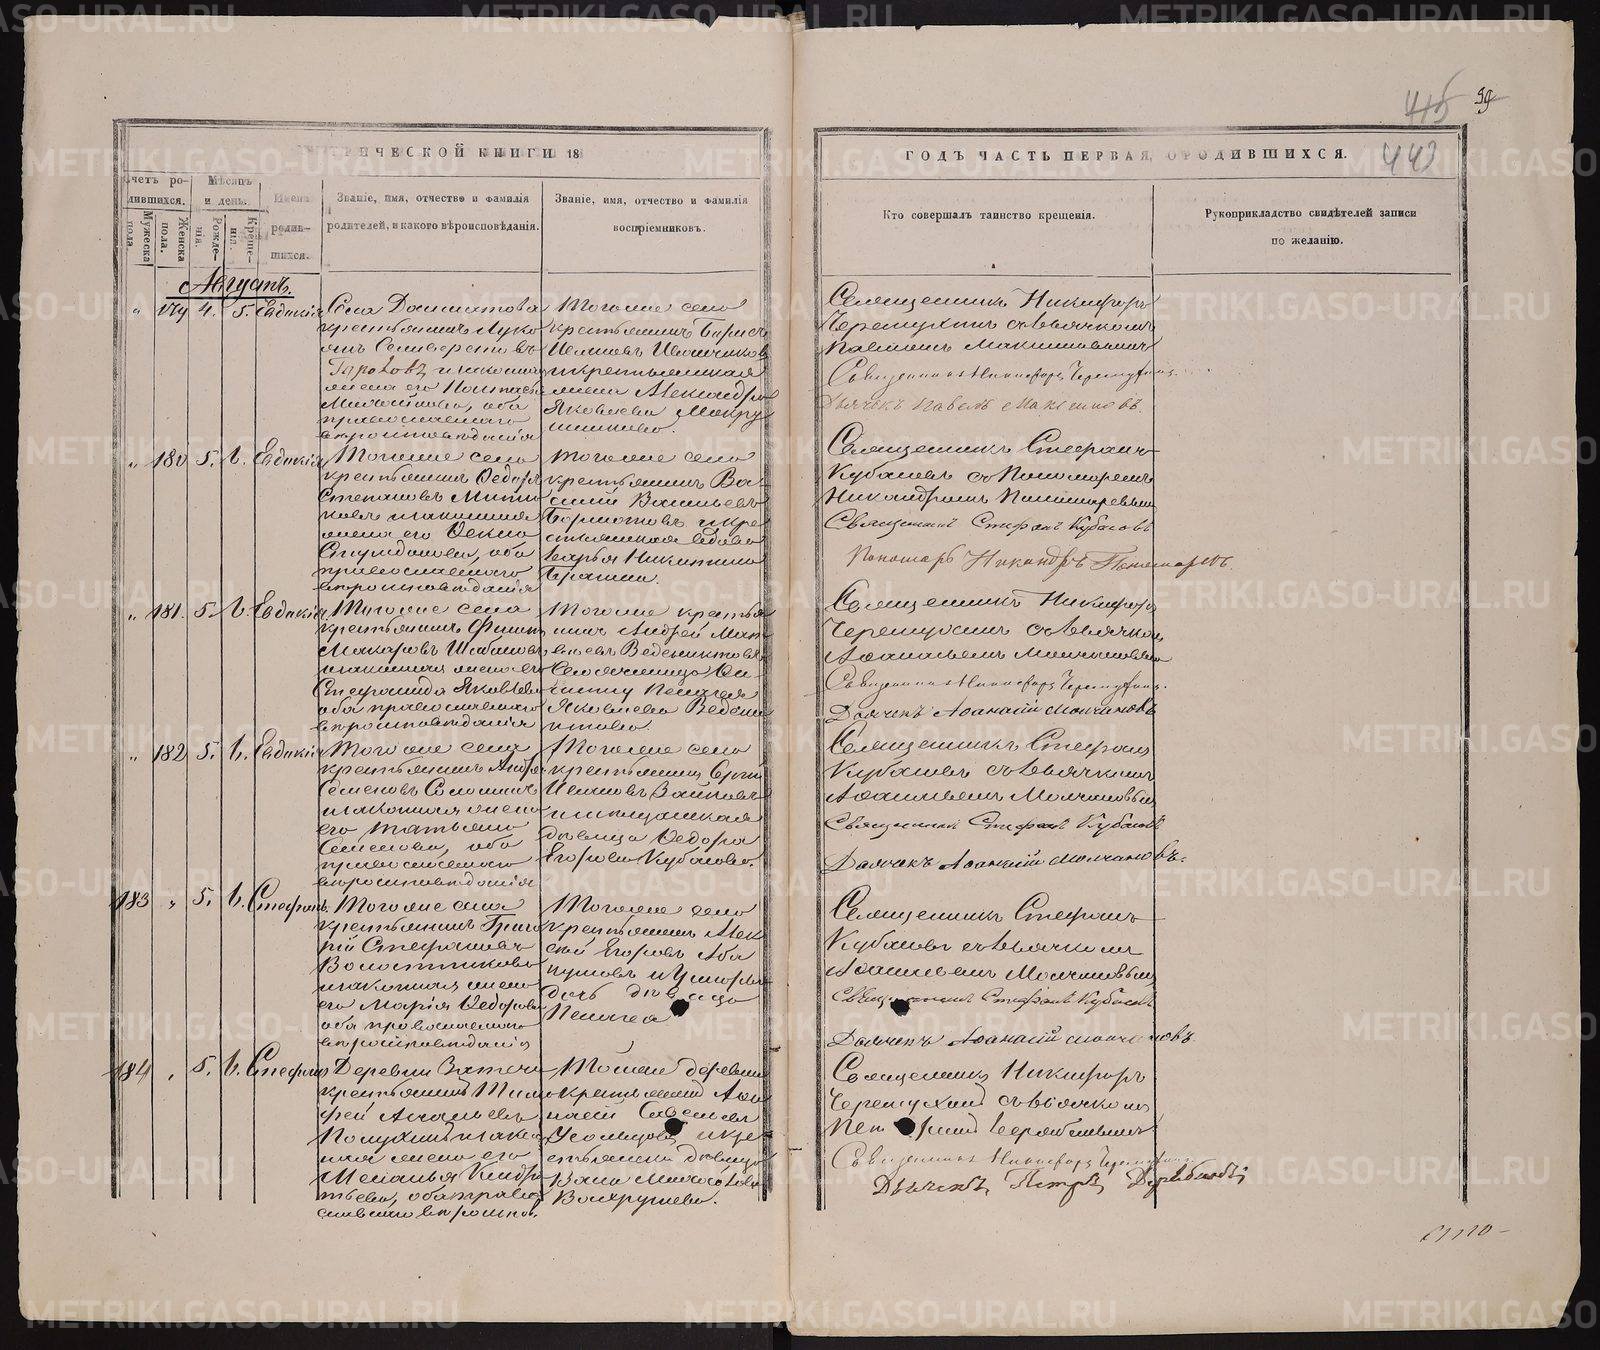 МЕТРИЧЕСКОЙ КНИГИ 18
Счетъ ро-
дившихся.
Мужеска
пола.
Женска
пола.
Мѣсяцъ
и день.
Рожде-
нія.
Креще-
нія.
Имена
родив-
шихся.
Званіе, имя, отчество и фамилія
родителей, и какого вѣроисповѣданія.
Званіе, имя, отчество и фамилія
воспріемниковъ.
Августъ.
" 179 4. 5. Евдокія
Села Далматова
крестьянинъ Луко
янъ Селиверстовъ
Гороховъ и законная
жена его
оба
православнаго
вѣроисповѣданія
Тогоже села
крестьянинъ Борисъ
и крестьянская
жена Александра
Яковлева Мокру
шникова.
" 180 5. 6. Евдокія
Тогоже села
крестьянинъ Ѳедоръ
Степановъ Митни
ковъ и законная
жена его Ѳекла
Спиридонова, оба
православнаго
вѣроисповѣданія
Тогоже села
крестьянинъ Ва-
силій Васильевъ
и кре
стьянская вдова
Дарья Никитина
" 181. 5. 6. Евдокія
Тогоже села
крестьянинъ Филип
Макаровъ Шабановъ
и законная жена его
Стефанида Яковлева
оба православнаго
вѣроисповѣданія
Тогоже крестья
нинъ Андрей Мат
вѣевъ Ведениктовъ
Пелагея
Яковлева Ведени
ктова.
" 182 5. 6. Евдокія
Тогоже села
крестьянинъ Андрей
Семеновъ
и законная жена
его Татьяна
Семенова, оба
православнаго
вѣроисповѣданія
Тогоже села
крестьянинъ Сергій
Ивановъ Зайковъ
и мѣщанская
дѣвица Ѳедора
Егорова Кубасова.
183 " 5. 6. Стефанъ.
Тогоже села
крестьянинъ Григо
рій Стефановъ
Волостниковъ
и законная жена
его Марія Ѳедорова
оба православнаго
вѣроисповѣданія
Тогоже села
крестьянинъ Алек
сѣй Егоровъ Аба
бушовъ и
дочь дѣвица
Пелагея
184 " 5. 6. Стефанъ
Деревни Затечи
крестьянинъ Тимо
фей Ананьевъ
Полухинъ и закон
ная жена его
Меланья Кондра
тьева, оба право
славнаго вѣроиспов.
Тойже деревни
крестьянинъ Аѳа
насій Савельевъ
Усольцовъ и кре
стьянская дѣвица
Вахрушева.
ГОДЪ ЧАСТЬ ПЕРВАЯ, О РОДИВШИХСЯ.
415 99
443
Кто совершалъ таинство крещенія.
Рукоприкладство свидѣтелей записи
по желанію.
Священникъ Никифоръ
Черемухинъ съ дьячкомъ
Павломъ Максимовымъ
Священникъ Никифоръ Черемухинъ
Дьячекъ Павелъ Максимовъ.
Священникъ Стефанъ
Кубасовъ съ Пономаремъ
Никандромъ Пономаревымъ
Священникъ Стефанъ Кубасовъ
Пономарь Никандръ Пономаревъ.
Священникъ Никифоръ
Черемухинъ съ дьячкомъ
Аѳанасьемъ Молчановымъ
Священникъ Никифоръ Черемухинъ.
Дьячекъ Аѳанасій Молчановъ
Священникъ Стефанъ
Кубасовъ съ дьячкомъ
Аѳанасьемъ Молчановымъ
Священникъ Стефанъ Кубасовъ
Дьячекъ Аѳанасій Молчановъ.
Священникъ Стефанъ
Кубасовъ съ дьячкомъ
Аѳанасіемъ Молчановымъ
Священникъ Стефанъ Кубасовъ
Дьячекъ Аѳанасій Молчановъ
Священникъ Никифоръ
Черемухинъ съ дьячкомъ
Петромъ Дерябинымъ
Священникъ Никифоръ Черемухинъ
Дьячекъ Петръ
METRIKI.GASO-URAL.RU